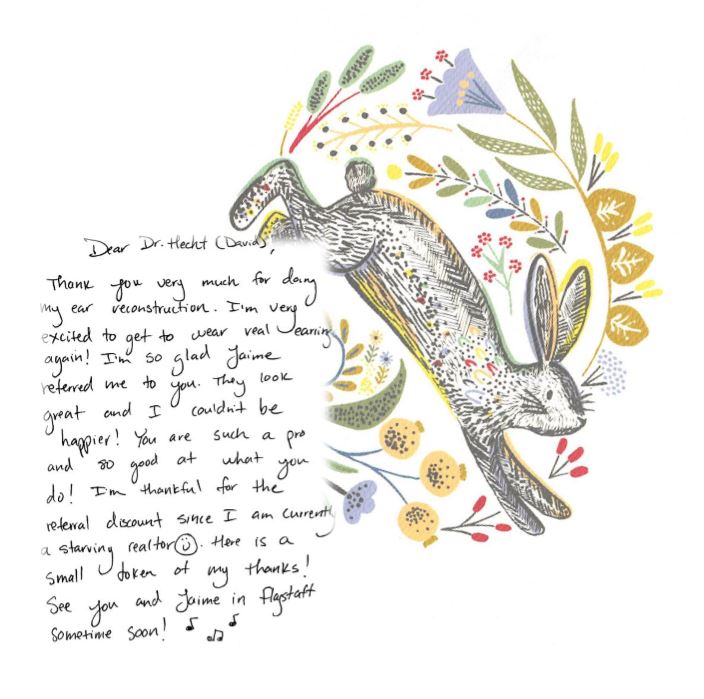 Dear Dr. Hecht (David),
Thank you very much for doing
my ear reconstruction. I'm very
excited to get to wear real earring
again! I'm so glad Jaime
referred me to you. They look
great and I couldn't be
happier! You are such a pro
and so good at what you
do! I'm thankful for the
referral discount since I am currently
a starving realtor☺. Here is a
small token of my thanks!
See you and Jaime in Flagstaff
sometime soon! ♪ ♫ ♪